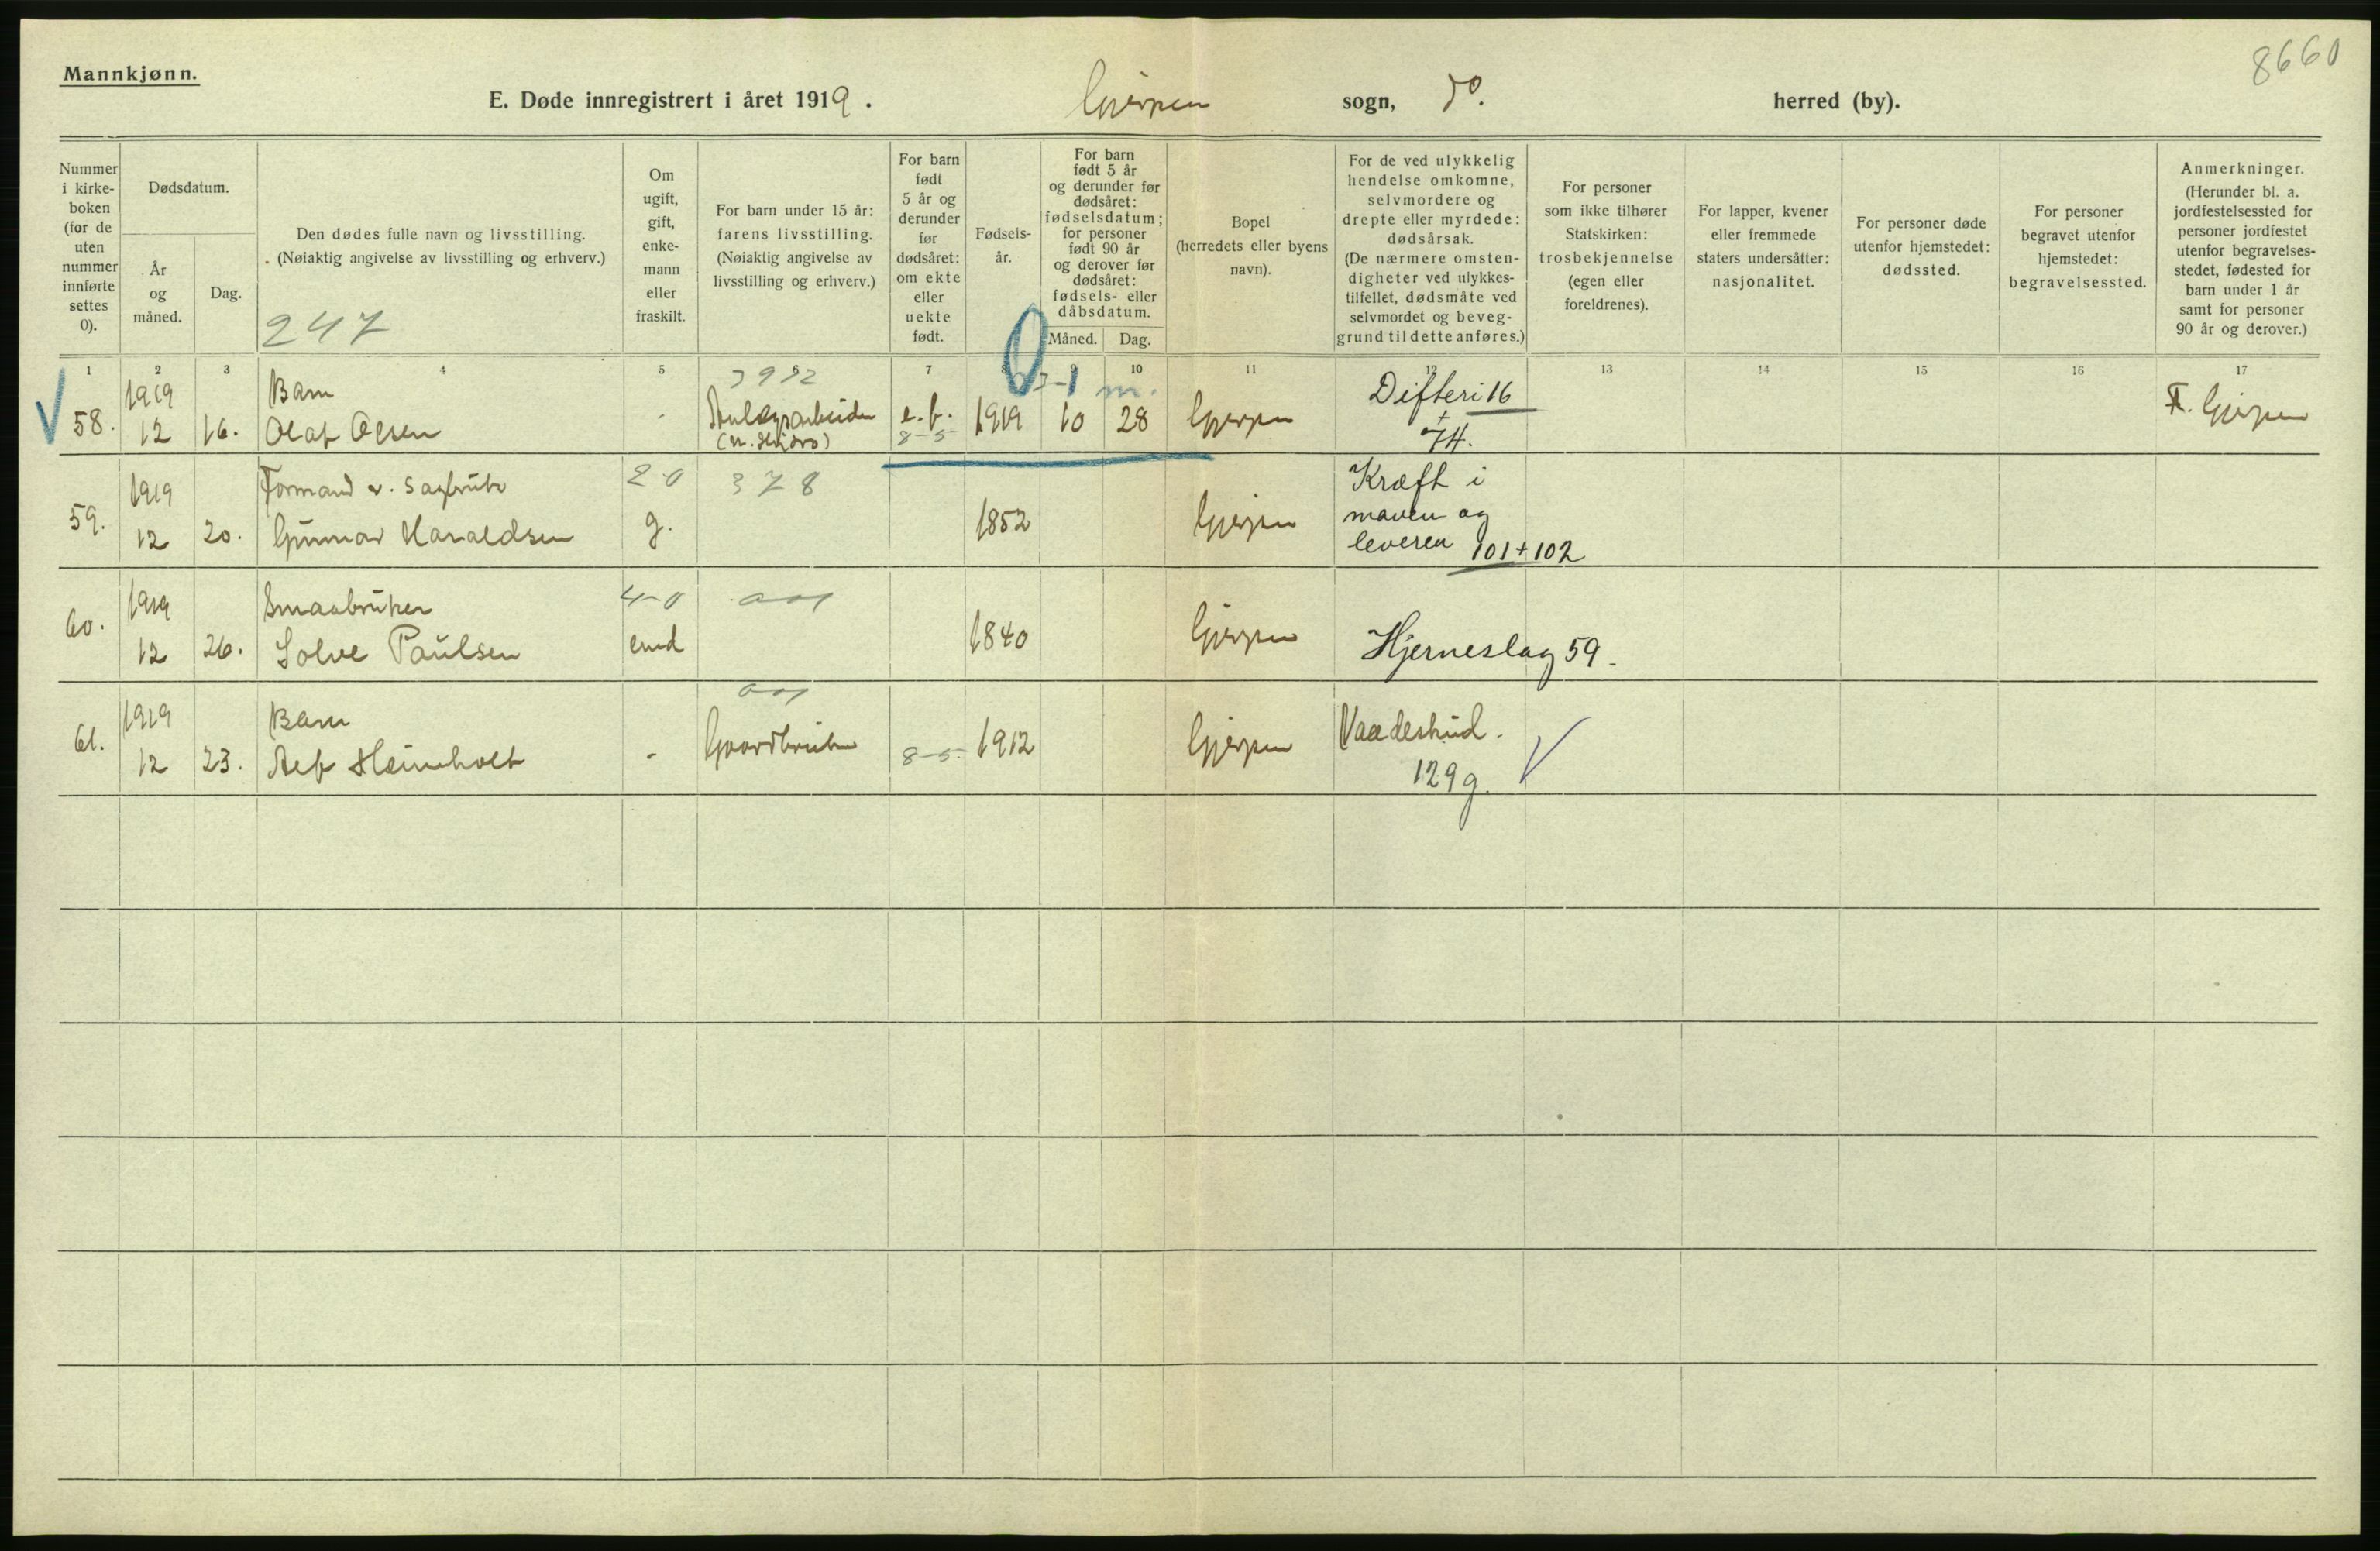 8660
Mannkjønn.
E. Døde innregistrert i året 1919. Gjerpen sogn, do. herred (by).
Nummer
i kirke-
boken
(for de
uten
nummer
innførte
settes
0).
Dødsdatum.
År
og
måned.
Dag.
Den dødes fulle navn og livsstilling.
(Nøiaktig angivelse av livsstilling og erhverv.)
247
Om
ugift,
gift,
enke-
mann
eller
fraskilt.
For barn under 15 år:
farens livsstilling.
(Nøiaktig angivelse av
livsstilling og erhverv.)
For barn
født
5 år og
derunder
før
dødsåret:
om ekte
eller
uekte
født.
Fødsels-
år.
For barn
født 5 år
og derunder før
dødsåret:
fødselsdatum;
for personer
født 90 år
og derover før
dødsåret:
fødsels- eller
dåbsdatum.
Måned. Dag.
Bopel
(herredets eller byens
navn).
For de ved ulykkelig
hendelse omkomne,
selvmordere og
drepte eller myrdede:
dødsårsak.
(De nærmere omsten-
digheter ved ulykkes-
tilfellet, dødsmåte ved
selvmordet og beveg-
grund til dette anføres.)
For personer
som ikke tilhører
Statskirken:
trosbekjennelse
(egen eller
foreldrenes).
For lapper, kvener
eller fremmede
staters undersåtter:
nasjonalitet.
For personer døde
utenfor hjemstedet:
dødssted.
For personer
begravet utenfor
hjemstedet:
begravelsessted.
Anmerkninger.
(Herunder bl. a.
jordfestelsessted for
personer jordfestet
utenfor begravelses-
stedet, fødested for
barn under 1 år
samt for personer
90 år og derover.)
1 2 3 4 5 6 7 8 9 10 11 12 13 14 15 16 17
1919 Barn Difteri 16
58. 12 16. Olaf Olsen - Anlægsarbeider e. f. 1919 10 28 Gjerpen + F. Gjerpen
8-5 74.
1919 Formand v. Sagbruk 2-0 378 Kræft i
59. 12 20. Gunnar Haraldsen g. 1852 Gjerpen maven og
leveren 101+102
1919 Smaabruker 4-0
60. 12 26. Solve Paulsen emd 1840 Gjerpen Hjerneslag 59.
1919 Barn Vaadeskud.
61. 12 23. - Gaardbruker 8-5 1912 Gjerpen
129g.